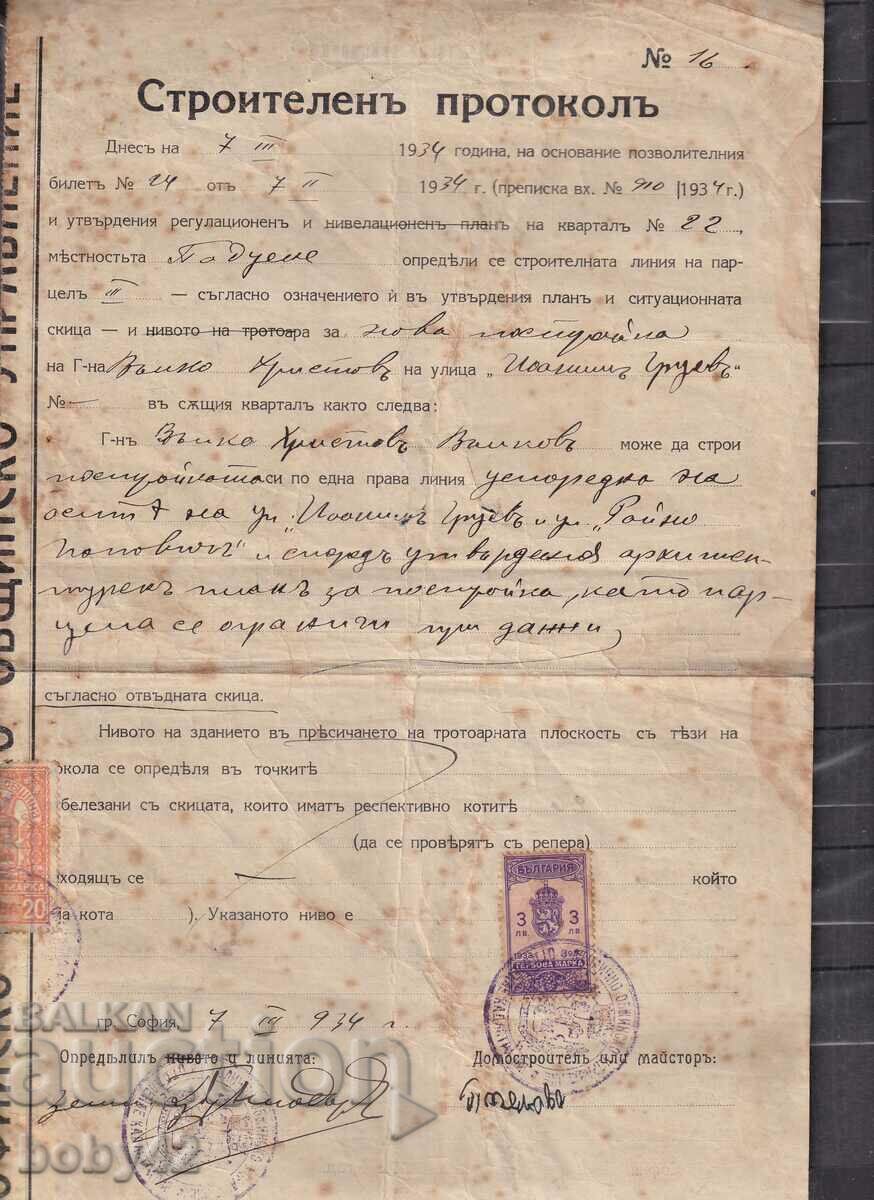 № 16
Строителенъ протоколъ
Днесъ на 7 III 1934 година, на основание позволителния
билетъ № 24 отъ 7 II 1934 г. (преписка вх. № 910 |1934 г.)
и утвърдения регулационенъ и нивелационенъ планъ на кварталъ № 22,
мѣстностьта Подуене опредѣли се строителната линия на пар-
целъ III — съгласно означението ѝ въ утвърдения планъ и ситуационната
скица — и нивото на тротоара за нова постройка
на Г-на Вълко Христовъ на улица „Иоакимъ Груевъ"
№ — въ сѫщия кварталъ както следва:
Г-нъ Вълко Христовъ Вълковъ може да строи
постройката си по една права линия успоредно на
осите на ул. „Иоакимъ Груевъ и ул. „Райно
Поповичъ" и споредъ утвърдения архитек-
туренъ планъ за постройка, като пар-
цела се огради при данни
съгласно отвъдната скица.
Нивото на зданието въ прѣсичането на тротоарната плоскость съ тѣзи на
окола се опредѣля въ точкитѣ
белезани съ скицата, които иматъ респективно котитѣ
(да се провѣрятъ съ репера)
ходящъ се — който
на кота ). Указаното ниво е
БЪЛГАРИЯ
3 3
ЛВ. ЛВ.
ГЕРБОВА МАРКА
20
гр. София, 7 III 934 г.
Опредѣлилъ нивото и линията: Домостроитель или майсторъ:
BALKAN
auction
boby42